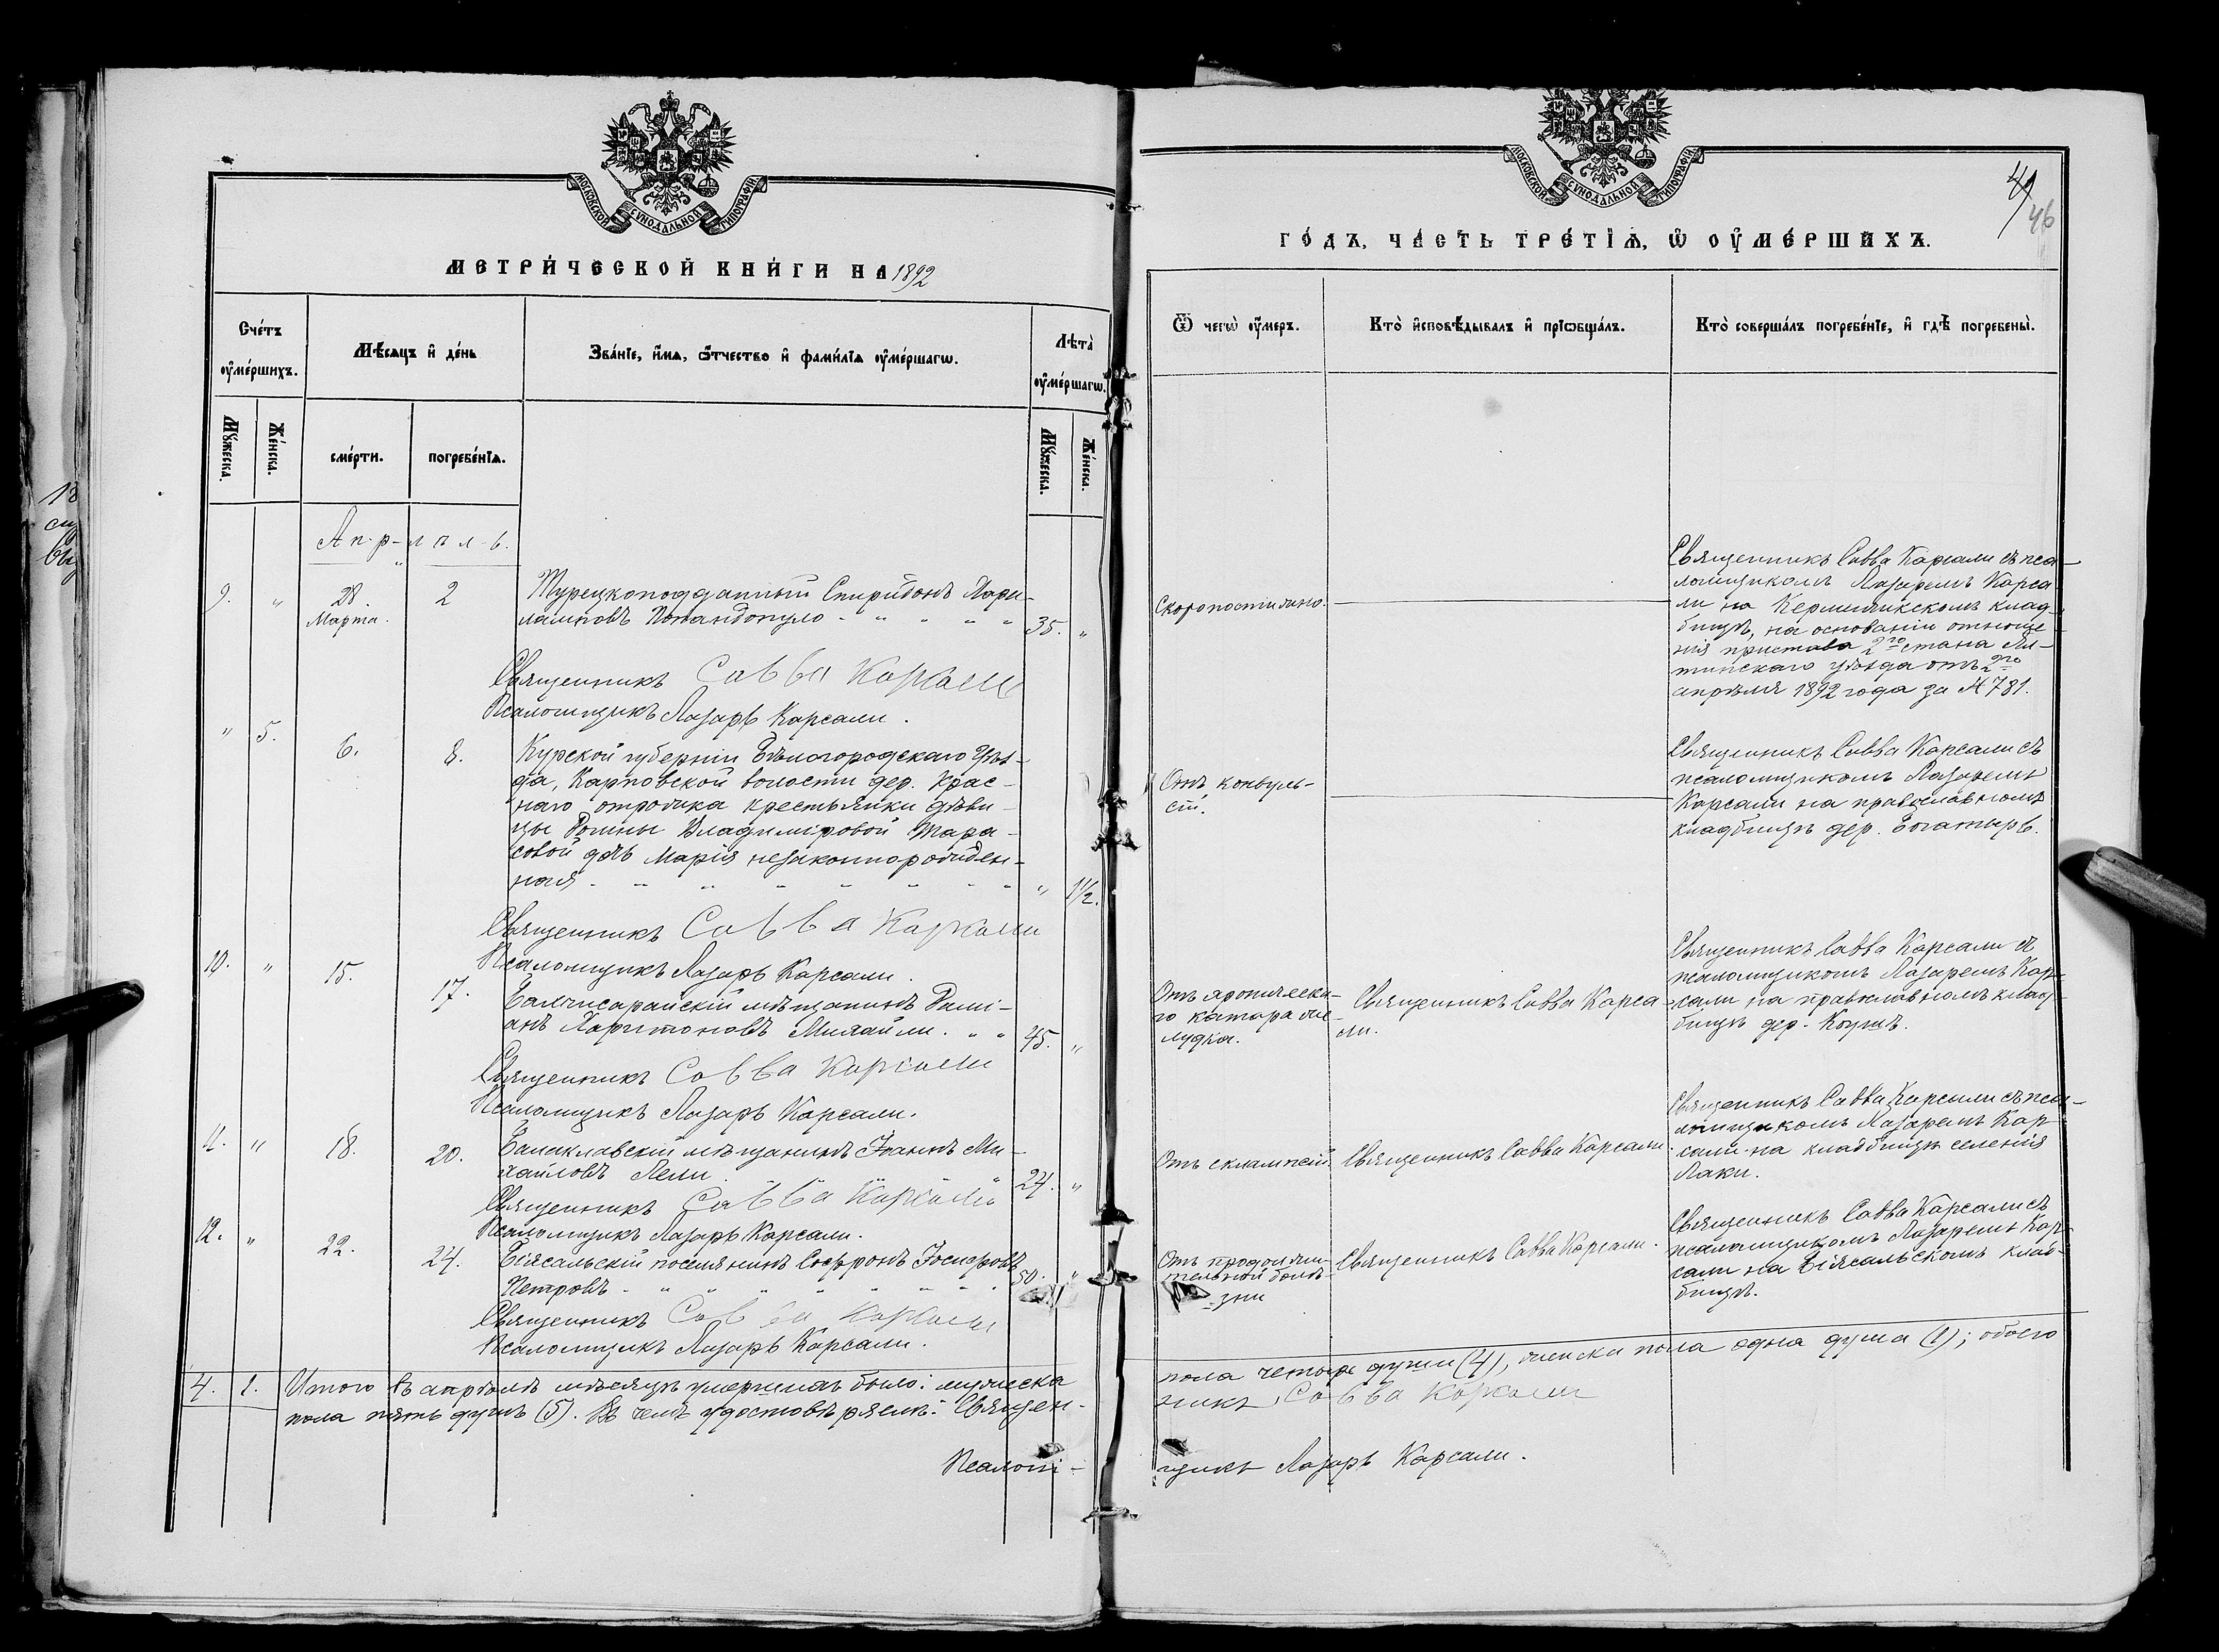 МОСКОВСКОЙ СѴНОДАЛЬНОЙ ТИПОГРАФІИ
МЕТРИ́ЧЕСКОЙ КНИ́ГИ НА 1892
Сче́тъ ѹ҆ме́ршихъ.
Мѣ́сяцъ и҆ де́нь
Зва́нїе, и҆́мѧ, ѻ҆́тчество и҆ фами́лїѧ ѹ҆ме́ршагѡ.
Лѣта̀ ѹ҆ме́ршагѡ.
Мꙋ́жеска.
Же́нска.
сме́рти.
погребе́нїѧ.
Мꙋ́жеска.
Же́нска.
Ап-р-ѣ-л-ь.
9. " 28. Марта. 2
Турецкоподданный Спиридонъ Хари-
ламповъ Попандопуло - " " " " 35. "
Священникъ Савва Карсали
Псаломщикъ Лазарь Карсали.
" 5. 6. 8.
Курской губерніи Бѣлогородскаго уѣз-
да, Карповской волости дер. Крас-
наго отрожка крестьянки дѣви-
цы Домны Владиміровой Тара-
совой дчь Марія незаконнорожден-
ная - " " " " " " 1½.
Священникъ Савва Карсали
Псаломщикъ Лазарь Карсали.
10. " 15. 17.
Бахчисарайскій мѣщанинъ Дами-
анъ Харитоновъ Михайли. " " 45. "
Священникъ Савва Карсали
Псаломщикъ Лазарь Карсали.
11. " 18. 20.
Балаклавскій мѣщанинъ Іоаннъ Ми-
хайловъ Лели " " " " 24. "
Священникъ Савва Карсали
Псаломщикъ Лазарь Карсали.
12. " 22. 24.
Біясальскій поселянинъ Софронъ Іосифовъ
Петровъ - " " " " " " 50. "
Священникъ Савва Карсали
Псаломщикъ Лазарь Карсали.
4. 1. Итого въ апрѣлѣ мѣсяцѣ умершихъ было: мужеска
пола пять душъ (5). Въ чемъ удостовѣряемъ: Священ-
Псалом-
МОСКОВСКОЙ СѴНОДАЛЬНОЙ ТИПОГРАФІИ
46
ГО́ДЪ, ЧА́СТЬ ТРЕ́ТЇѦ, Ѡ҆ ОУ҆МЕ́РШИХЪ.
Ѿ чегѡ̀ ѹ҆́меръ.
Кто̀ и҆сповѣ́дывалъ и҆ прїѡбща́лъ.
Кто̀ соверша́лъ погребе́нїе, и҆ гдѣ̀ погребены̀.
Скоропостижно.
Священникъ Савва Карсали съ пса-
ломщикомъ Лазаремъ Карса
ли на Керменчикскомъ клад-
бищѣ, на основаніи отноше-
нія пристава 2го стана Ял-
тинскаго уѣзда отъ 2го
апрѣля 1892 года за № 781.
Отъ конвуль-
сій.
Священникъ Савва Карсали съ
псаломщикомъ Лазаремъ
Карсали на православномъ
кладбищѣ дер. Богатырь.
Отъ хроническа-
го катара же-
лудка.
Священникъ Савва Карса-
ли.
Священникъ Савва Карсали съ
псаломщикомъ Лазаремъ Кар-
сали на православномъ клад-
бищѣ дер. Коушъ.
Отъ еклампсіи
Священникъ Савва Карсали.
Священникъ Савва Карсали съ пса-
ломщикомъ Лазаремъ Кар-
сали на кладбищѣ селенія
Лаки.
Отъ продолжи-
тельной болѣ-
зни
Священникъ Савва Карсали.
Священникъ Савва Карсали съ
псаломщикомъ Лазаремъ Кар-
сали на Біясальскомъ клад-
бищѣ.
пола четыре души (4), женска пола одна душа (1); обоего
никъ Савва Карсали
щикъ Лазарь Карсали.